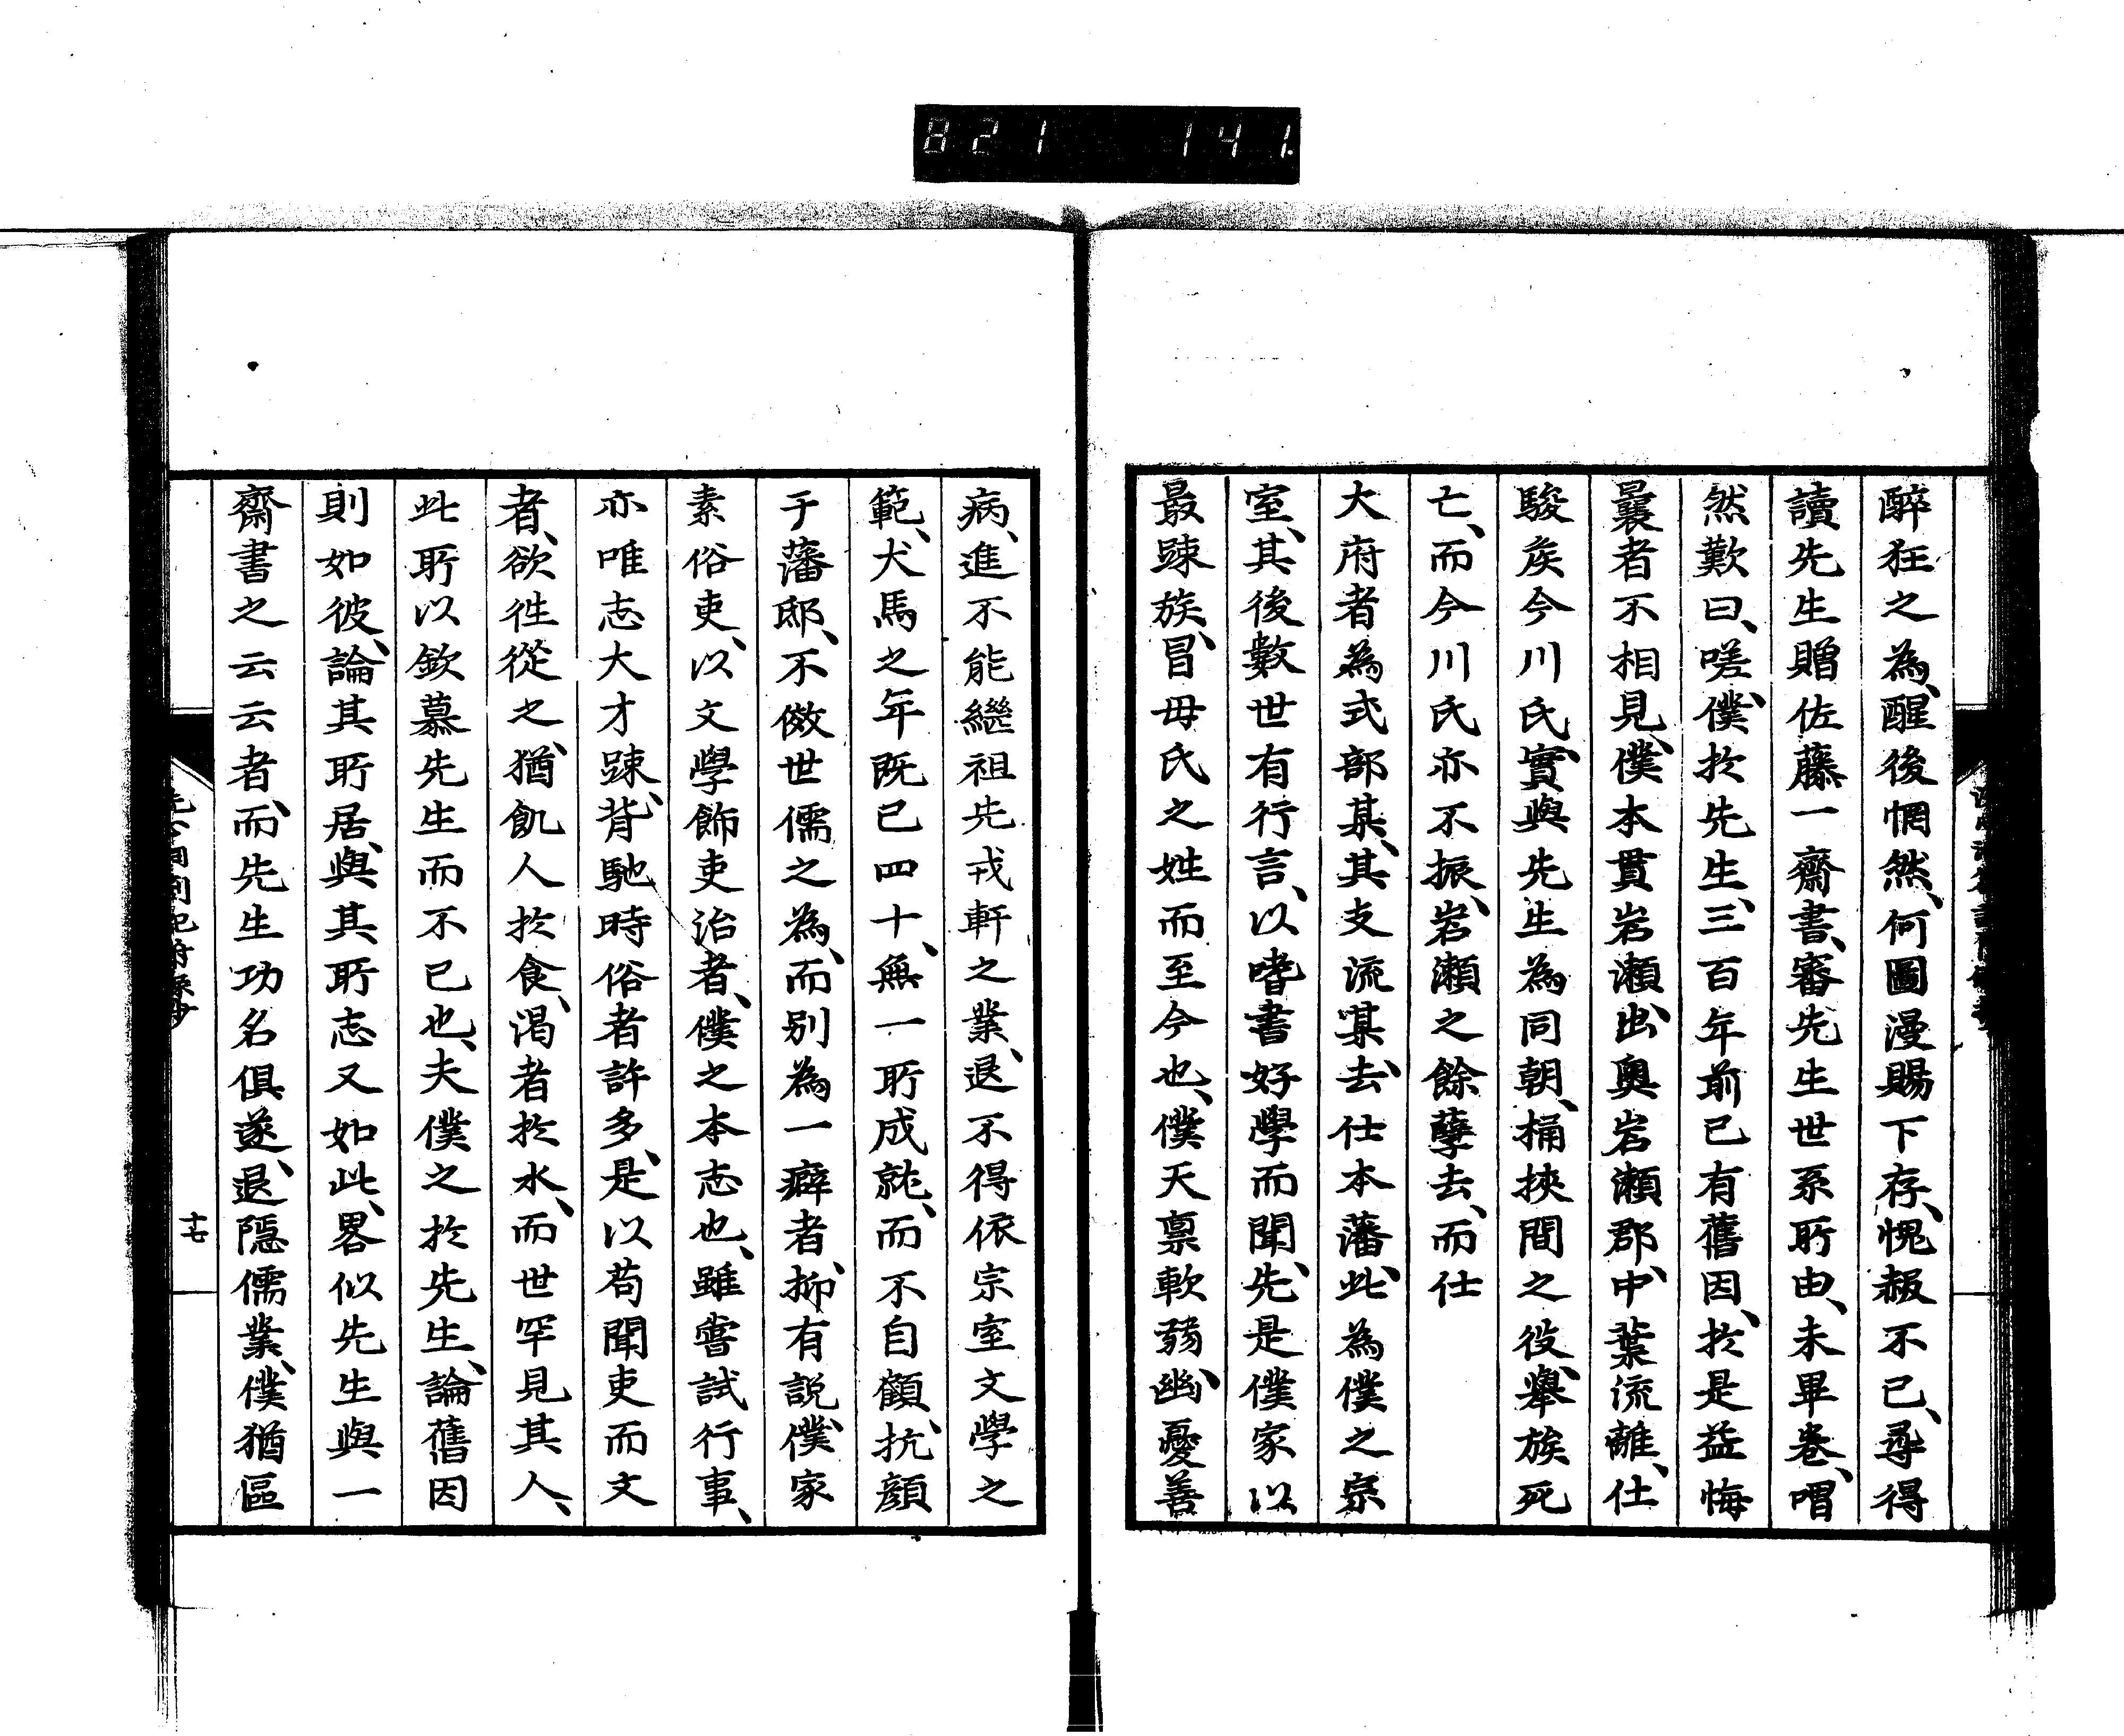 821 141.
醉狂之為、醒後惘然、何圖漫賜下存、愧赧不已、尋得
讀先生贈佐藤一齋書、審先生世系所由、未畢巻、喟
然歎曰、嗟僕於先生、三百年前已有舊因、於是益悔
曩者不相見、僕本貫岩瀨、出奥岩瀨郡、中葉流離、仕
駿侯今川氏、實與先生為同朝、桶挾間之役、舉族死
亡、而今川氏亦不振、岩瀨之餘孽去、而仕
大府者為式部某、其支流某、去仕本藩、此為僕之宗
室、其後數世有行言、以嗜書好學而聞、先是僕家以
最踈族、冒毋氏之姓而至今也、僕天禀軟弱、幽憂善
病、進不能繼祖先戎軒之業、退不得依宗室文學之
範、犬馬之年既已四十、無一所成就、而不自顧、抗顔
于藩邸、不傚世儒之為、而別為一癖者、抑有説、僕家
素俗吏、以文學飾吏治者、僕之本志也、雖嘗試行事、
亦唯志大才踈、背馳時俗者許多、是以苟聞吏而文
者、欲徃從之、猶飢人於食、渇者於水、而世罕見其人、
此所以欽慕先生而不已也、夫僕之於先生、論舊因
則如彼、論其所居、與其所志又如此、畧似先生與一
齋書之云云者、而先生功名俱遂、退隱儒業、僕猶區
十七